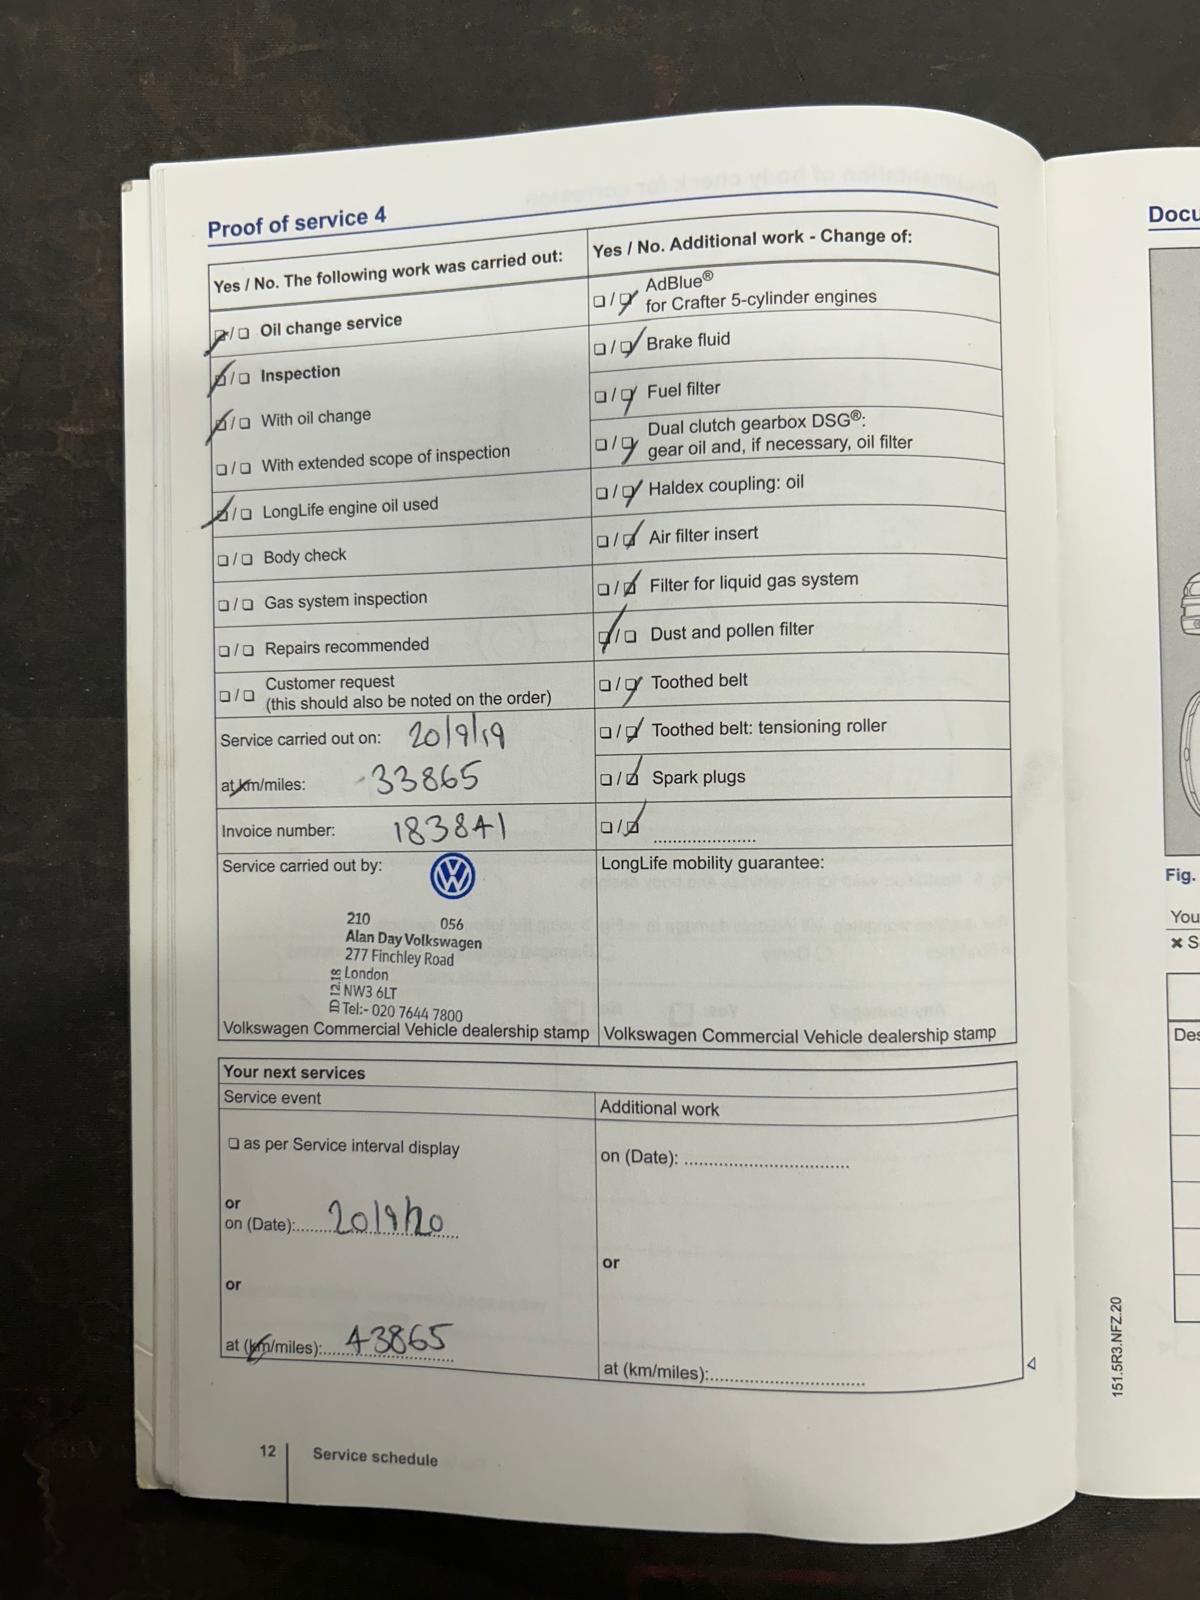 Proof of service 4
Yes / No. The following work was carried out:
❏ / ❏ Oil change service
❏ / ❏ Inspection
❏ / ❏ With oil change
❏ / ❏ With extended scope of inspection
❏ / ❏ LongLife engine oil used
❏ / ❏ Body check
❏ / ❏ Gas system inspection
❏ / ❏ Repairs recommended
❏ / ❏ Customer request
(this should also be noted on the order)
Service carried out on: 20/9/19
at km/miles: 33865
Invoice number: 183841
Service carried out by:
VW
210 056
Alan Day Volkswagen
277 Finchley Road
London
NW3 6LT
Tel:- 020 7644 7800
ID 12.18
Volkswagen Commercial Vehicle dealership stamp
Yes / No. Additional work - Change of:
❏ / ❏ AdBlue®
for Crafter 5-cylinder engines
❏ / ❏ Brake fluid
❏ / ❏ Fuel filter
❏ / ❏ Dual clutch gearbox DSG®:
gear oil and, if necessary, oil filter
❏ / ❏ Haldex coupling: oil
❏ / ❏ Air filter insert
❏ / ❏ Filter for liquid gas system
❏ / ❏ Dust and pollen filter
❏ / ❏ Toothed belt
❏ / ❏ Toothed belt: tensioning roller
❏ / ❏ Spark plugs
❏ / ❏ ......................
LongLife mobility guarantee:
Volkswagen Commercial Vehicle dealership stamp
Your next services
Service event
❏ as per Service interval display
or
on (Date): 20/9/20
or
at (km/miles): 43865
Additional work
on (Date): ..................................
or
at (km/miles):................................
12 Service schedule
151.5R3.NFZ.20
Docu
Fig.
You
✖ S
Des